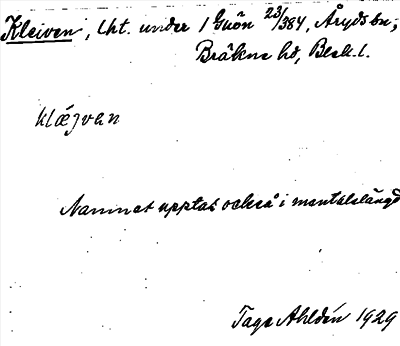 Kleiven, lht. under 1 Guön 23/384, Åryds sn;
Bräkne hd, Blek. l.
klæjvan
Namnet upptas också i mantalslängd
Tage Ahldén 1929